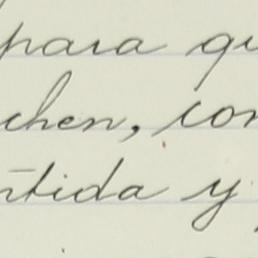 para qu
chen, con
ntida y